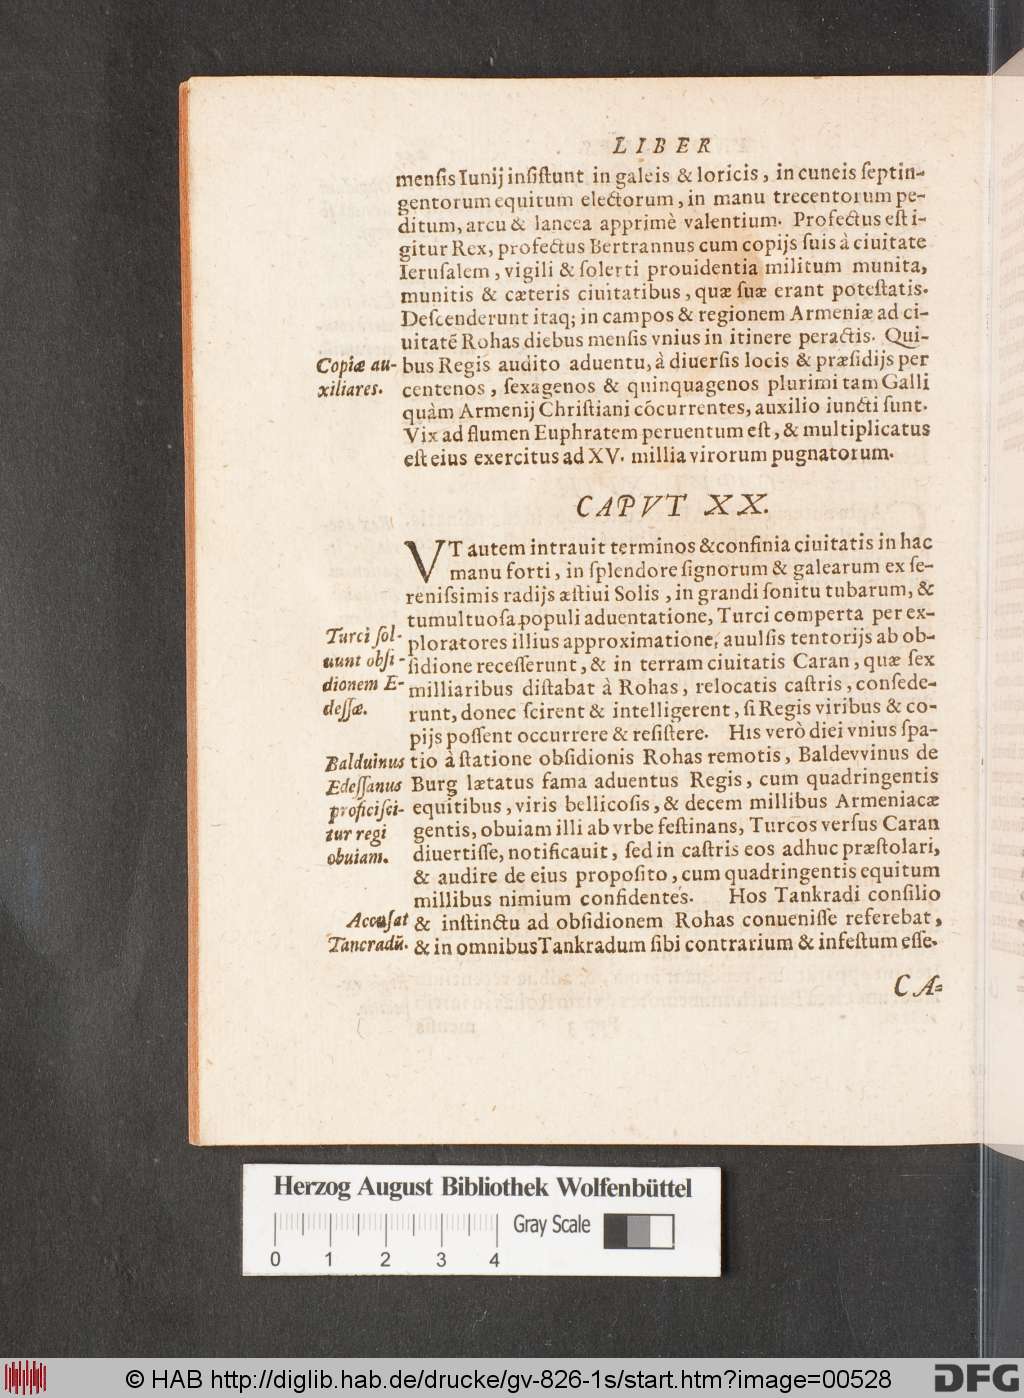 LIBER
mensis Iunij insistunt in galeis & loricis, in cuneis septin-
gentorum equitum electorum, in manu trecentorum pe-
ditum, arcu & lancea apprimè valentium. Profectus est i-
gitur Rex, profectus Bertrannus cum copijs suis à ciuitate
Ierusalem, vigili & solerti prouidentia militum munita,
munitis & cæteris ciuitatibus, quæ suæ erant potestatis.
Descenderunt itaq; in campos & regionem Armeniæ ad ci-
uitatē Rohas diebus mensis vnius in itinere peractis. Qui-
Copiæ au-
xiliares.
bus Regis audito aduentu, à diuersis locis & præsidijs per
centenos, sexagenos & quinquagenos plurimi tam Galli
quàm Armenij Christiani cōcurrentes, auxilio iuncti sunt.
Vix ad flumen Euphratem peruentum est, & multiplicatus
est eius exercitus ad XV. millia virorum pugnatorum.
CAPVT XX.
VT autem intrauit terminos & confinia ciuitatis in hac
manu forti, in splendore signorum & galearum ex se-
renissimis radijs æstiui Solis, in grandi sonitu tubarum, &
tumultuosa populi aduentatione, Turci comperta per ex-
Turci sol-
uunt obsi-
dionem E-
dessæ.
ploratores illius approximatione, auulsis tentorijs ab ob-
sidione recesserunt, & in terram ciuitatis Caran, quæ sex
milliaribus distabat à Rohas, relocatis castris, consede-
runt, donec scirent & intelligerent, si Regis viribus & co-
pijs possent occurrere & resistere. His verò diei vnius spa-
Balduinus
Edessanus
proficisci-
tur regi
obuiam.
tio à statione obsidionis Rohas remotis, Baldevvinus de
Burg lætatus fama aduentus Regis, cum quadringentis
equitibus, viris bellicosis, & decem millibus Armeniacæ
gentis, obuiam illi ab vrbe festinans, Turcos versus Caran
diuertisse, notificauit, sed in castris eos adhuc præstolari,
& audire de eius proposito, cum quadringentis equitum
millibus nimium confidentes. Hos Tankradi consilio
Accusat
Tancradū.
& instinctu ad obsidionem Rohas conuenisse referebat,
& in omnibus Tankradum sibi contrarium & infestum esse.
CA-
Herzog August Bibliothek Wolfenbüttel
Gray Scale
0 1 2 3 4
© HAB http://diglib.hab.de/drucke/gv-826-1s/start.htm?image=00528
DFG